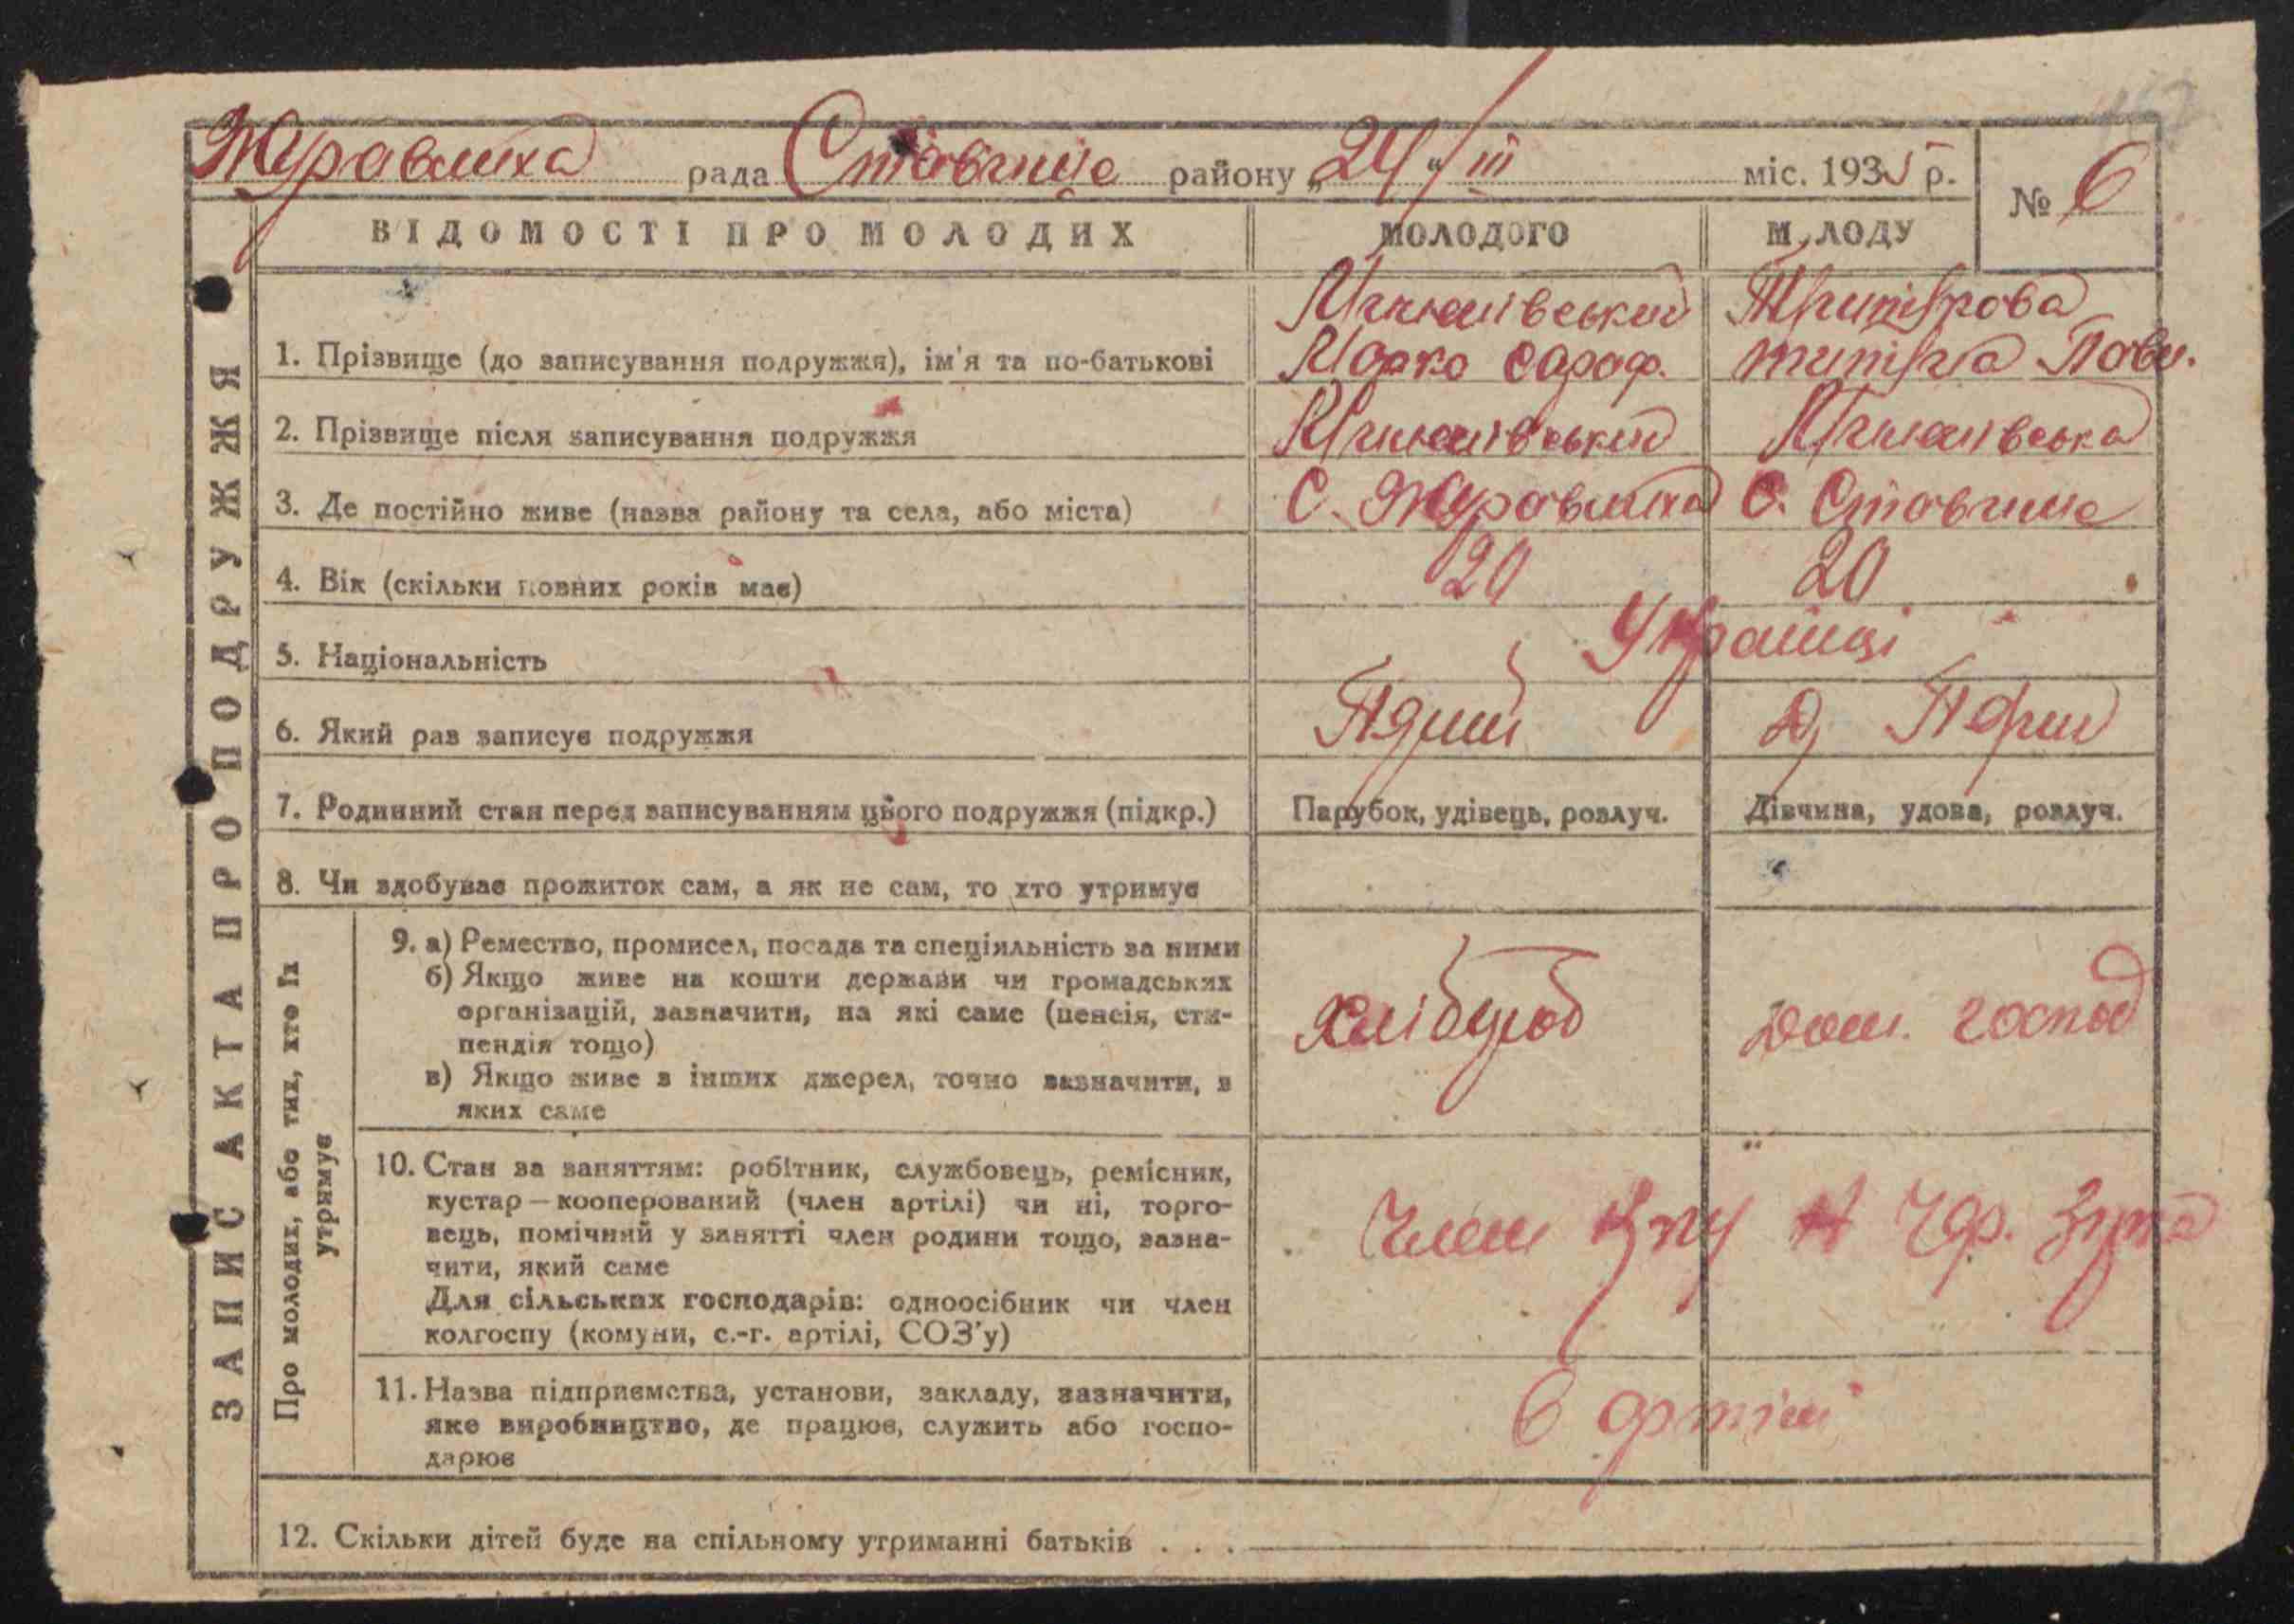 Журавлиха рада Ставище району „24“ III міс. 1935 р.
№ 6
ВІДОМОСТІ ПРО МОЛОДИХ МОЛОДОГО МОЛОДУ
ЗАПИС АКТА ПРО ПОДРУЖЖЯ
1. Прізвище (до записування подружжя), ім'я та по-батькові
Марко Сараф.
2. Прізвище після записування подружжя
3. Де постійно живе (назва району та села, або міста) С. Журавлиха С. Ставище
4. Вік (скільки повних років має) 20 20
5. Національність Українці
6. Який раз записує подружжя
7. Родинний стан перед записуванням цього подружжя (підкр.) Парубок, удівець, розлуч. Дівчина, удова, розлуч.
8. Чи здобуває прожиток сам, а як не сам, то хто утримує
Про молодих, або тих, хто їх
утримує
9. а) Ремество, промисел, посада та спеціяльність за ними
б) Якщо живе на кошти держави чи громадських
організацій, зазначити, на які саме (пенсія, сти-
пендія тощо)
в) Якщо живе з інших джерел, точно зазначити, з
яких саме
Хлібороб Дом. господ
10. Стан за заняттям: робітник, службовець, ремісник,
кустар—кооперований (член артілі) чи ні, торго-
вець, помічний у занятті член родини тощо, зазна-
чити, який саме
Для сільських господарів: одноосібник чи член
колгоспу (комуни, с.-г. артілі, СОЗ'у)
Член
11. Назва підприємства, установи, закладу, зазначити,
яке виробництво, де працює, служить або госпо-
дарює
В артілі
12. Скільки дітей буде на спільному утриманні батьків . . .